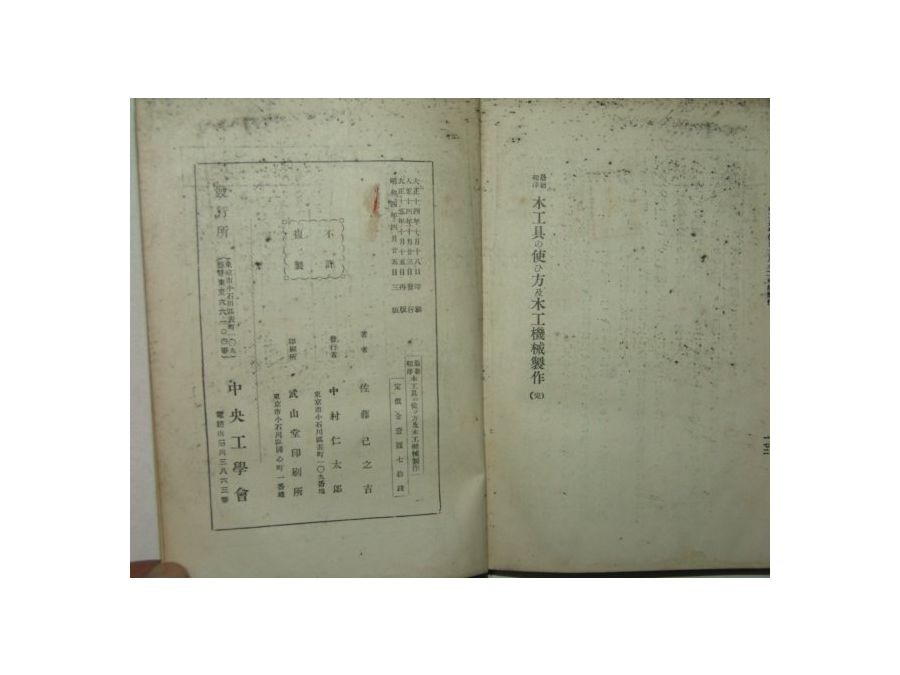 最新
和洋
木工具の使ひ方及木工機械製作
(完)
大正十四年七月十八日印刷
大正十四年十月廿三日發行
大正十五年十月十五日再版
昭和四年四月廿五日三版
不許
複製
最新
和洋
木工具の使ひ方及木工機械製作
定價金壹圓七拾錢
著者
佐藤己之吉
發行者
中村仁太郎
東京市小石川區表町一〇九番地
印刷所
武山堂印刷所
東京市小石川區
町一番地
發行所
東京市小石川區表町一〇九
中央工學會